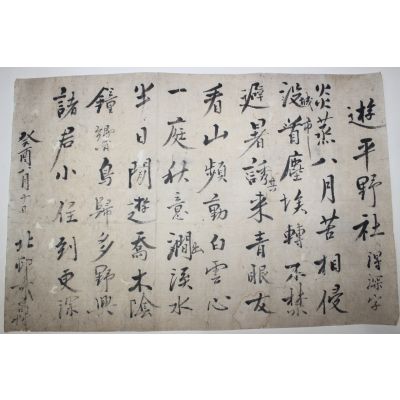 遊平野社 得深字
炎蒸八月苦相侵
城市
没首塵埃轉不禁
避暑誘共来青眼友
看山頻動白雲心
一庭秋意澗出溪水
半日閒遊喬木陰
鐘響鳥歸多野興
諸君小住到更深
癸酉八月十日 北邨